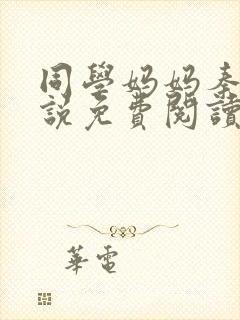 同學媽媽秦
說免費閱讀
華電